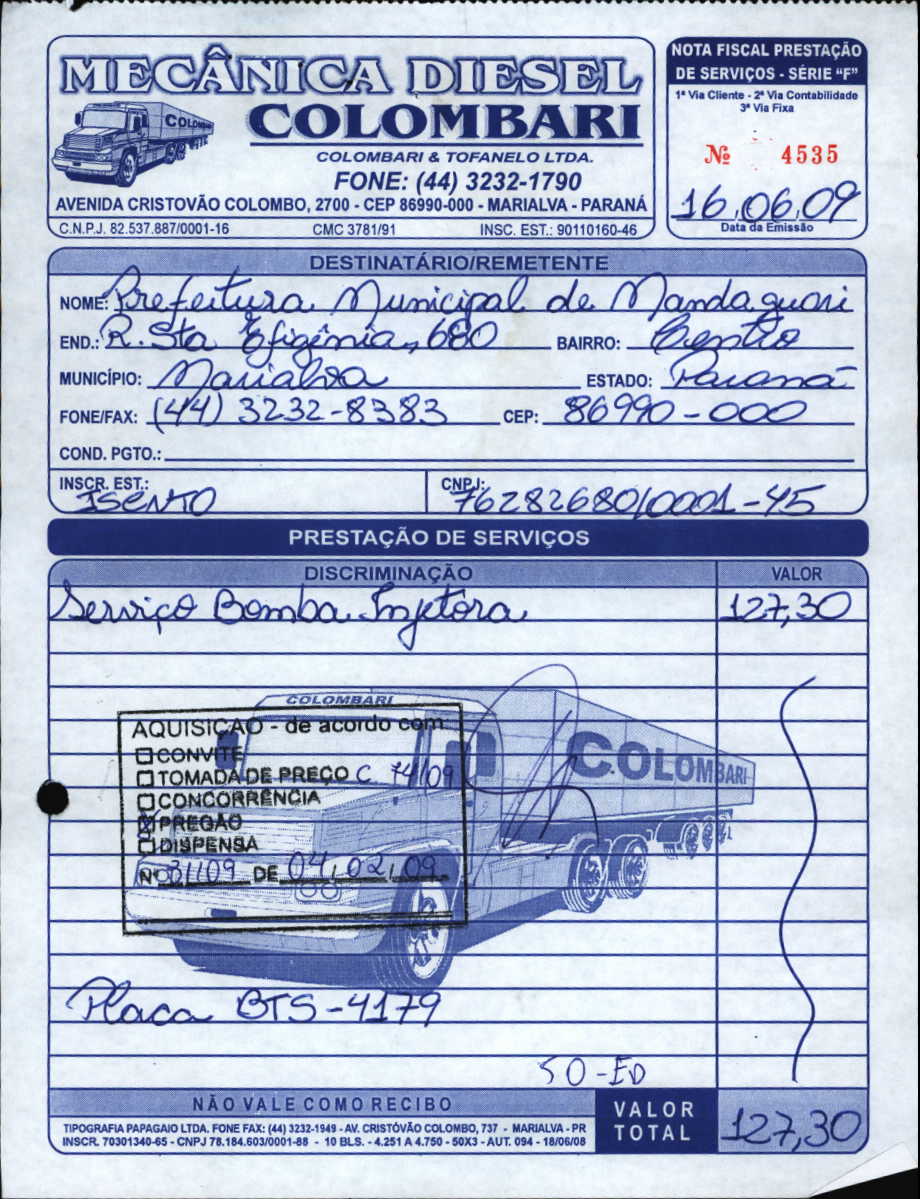 MECÂNICA DIESEL
COLOMBARI
COLOMBARI & TOFANELO LTDA.
FONE: (44) 3232-1790
AVENIDA CRISTOVÃO COLOMBO, 2700 - CEP 86990-000 - MARIALVA - PARANÁ
C.N.P.J. 82.537.887/0001-16 CMC 3781/91 INSC. EST.: 90110160-46
NOTA FISCAL PRESTAÇÃO
DE SERVIÇOS - SÉRIE "F"
1ª Via Cliente - 2ª Via Contabilidade
3ª Via Fixa
Nº 4535
16.06.09
Data da Emissão
DESTINATÁRIO/REMETENTE
NOME: Prefeitura Municipal de Mandaguari
END.: R. Sta Efigênia, 680 BAIRRO: Centro
MUNICÍPIO: Marialva ESTADO: Paraná
FONE/FAX: (44) 3232-8383 CEP: 86990-000
COND. PGTO.:
INSCR. EST.: ISENTO CNPJ: 76282680/0001-45
PRESTAÇÃO DE SERVIÇOS
DISCRIMINAÇÃO VALOR
Serviço Bomba Injetora 127,30
COLOMBARI
COLOMBARI
AQUISIÇÃO - de acordo com
CONVITE
TOMADA DE PREÇO C. 74/09
CONCORRÊNCIA
PREGÃO
DISPENSA
Nº 031/09 DE 04,02,09
Placa BTS-4179
SO-ED
NÃO VALE COMO RECIBO
TIPOGRAFIA PAPAGAIO LTDA. FONE FAX: (44) 3232-1949 - AV. CRISTÓVÃO COLOMBO, 737 - MARIALVA - PR
INSCR. 70301340-65 - CNPJ 78.184.603/0001-88 - 10 BLS. - 4.251 A 4.750 - 50X3 - AUT. 094 - 18/06/08
VALOR
TOTAL 127,30